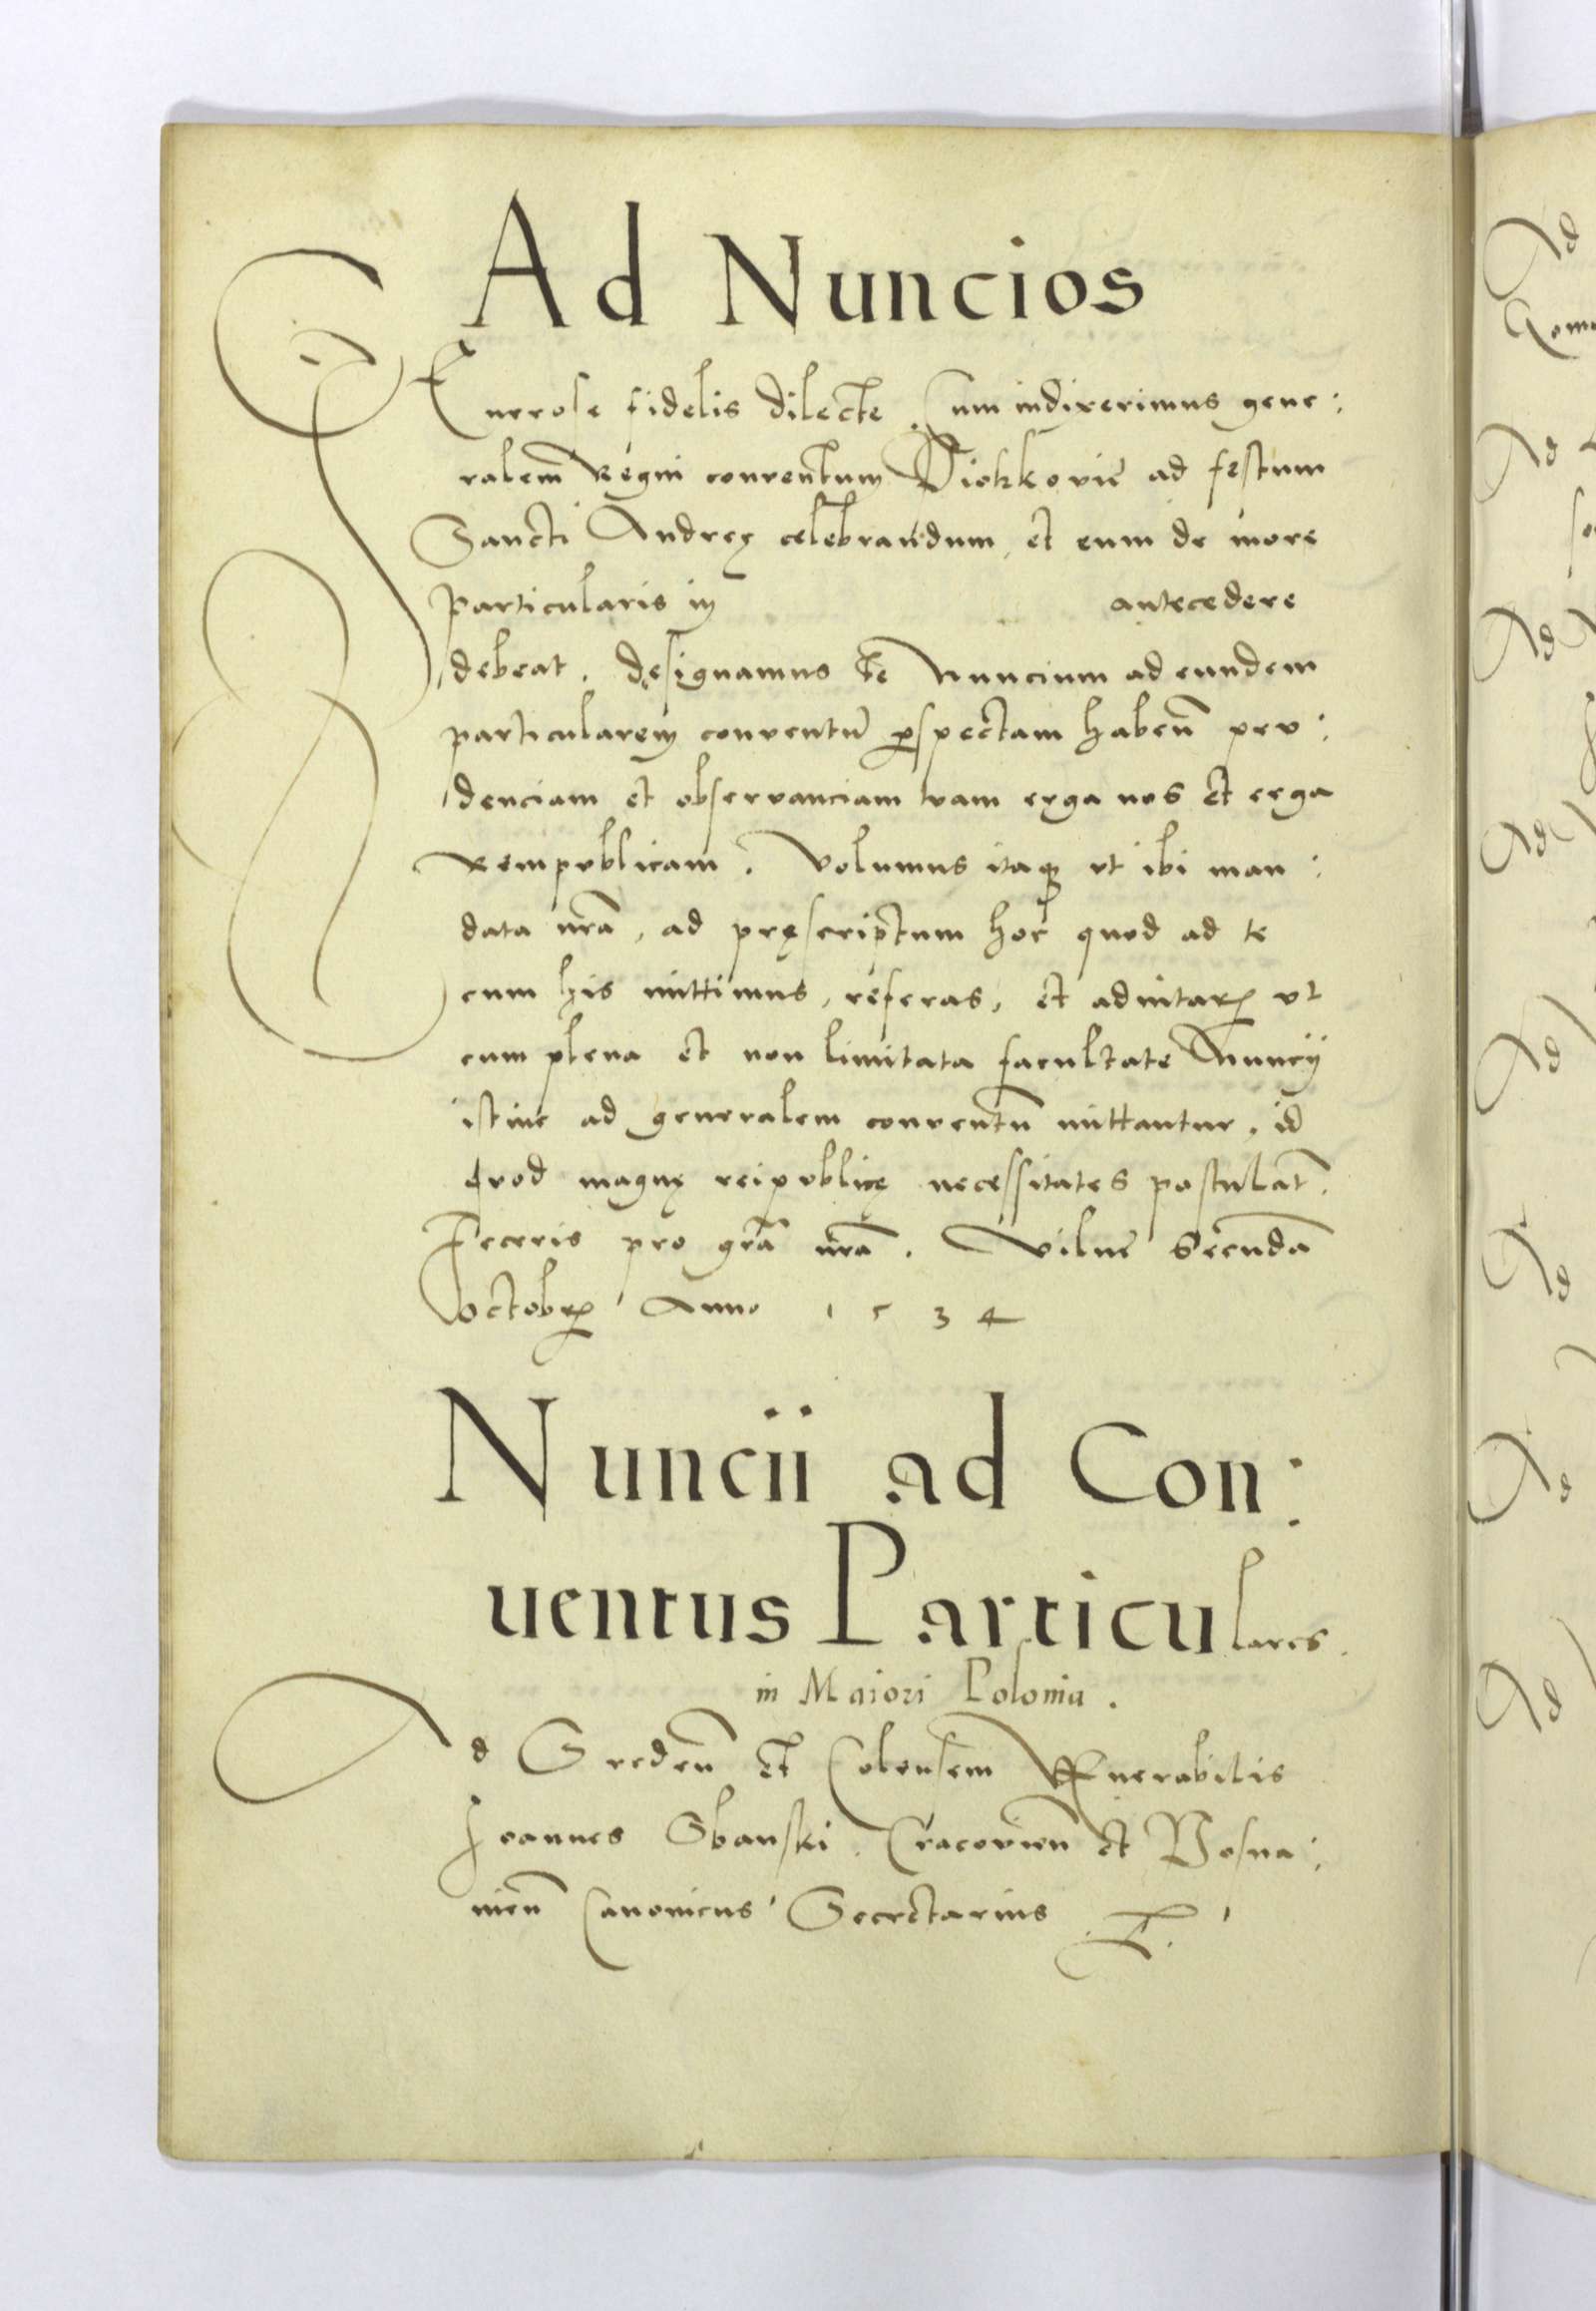 Ad Nuncios
Generose fidelis dilecte Cum indixerimus gene:
ralem Regni conventum Piotrkovie ad festum
Sancti Andreę celebrandum, et eum de more
particularis in antecedere
debeat. designamus te Nuncium ad eundem
particularem conventũ perspectam habeñ pru:
denciam et observanciam tvam erga nos et erga
Rempvblicam. Volumus itaq vt ibi man:
data nrã, ad pręscriptum hoc quod ad te
cum his mittimus, referas, et adnitaris vt
cum plena et non limitata facultate Nuncij
istinc ad generalem conventũ mittantur, id
qvod magnę reipvblicę necessitates postulãt.
Feceris pro grã nrã. Vilne Secunda
octobris Anno 1534
Nuncii ad Con:
uentus Particulares.
in Maiori Polonia.
Ad Sredeñ et Colensem Venerabilis
Joannes Sbanski. Cracovieñ et Posna:
nieñ Canonicus Secretarius